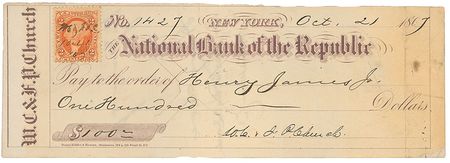 No. 1427 NEW YORK, Oct. 21 1867
THE National Bank of the Republic
Pay to the order of Henry James Jr.
One Hundred Dollars
$100— W.C. & F.P. Church
W.C. & F.P. Church